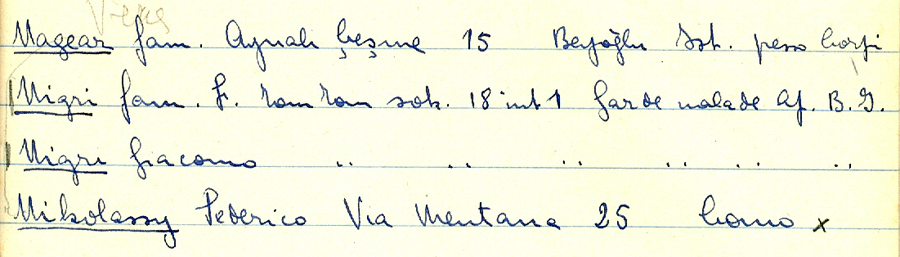 Magear fam. Aynalı Çeşme 15 Beyoğlu Ist. presso Corpi
Nigri fam. F. Tom Tom sok. 18 int 1 Garde malade Af. B. G.
Nigri Giacomo .. .. .. .. .. ..
Mikolassy Federico Via Mentana 25 Como x